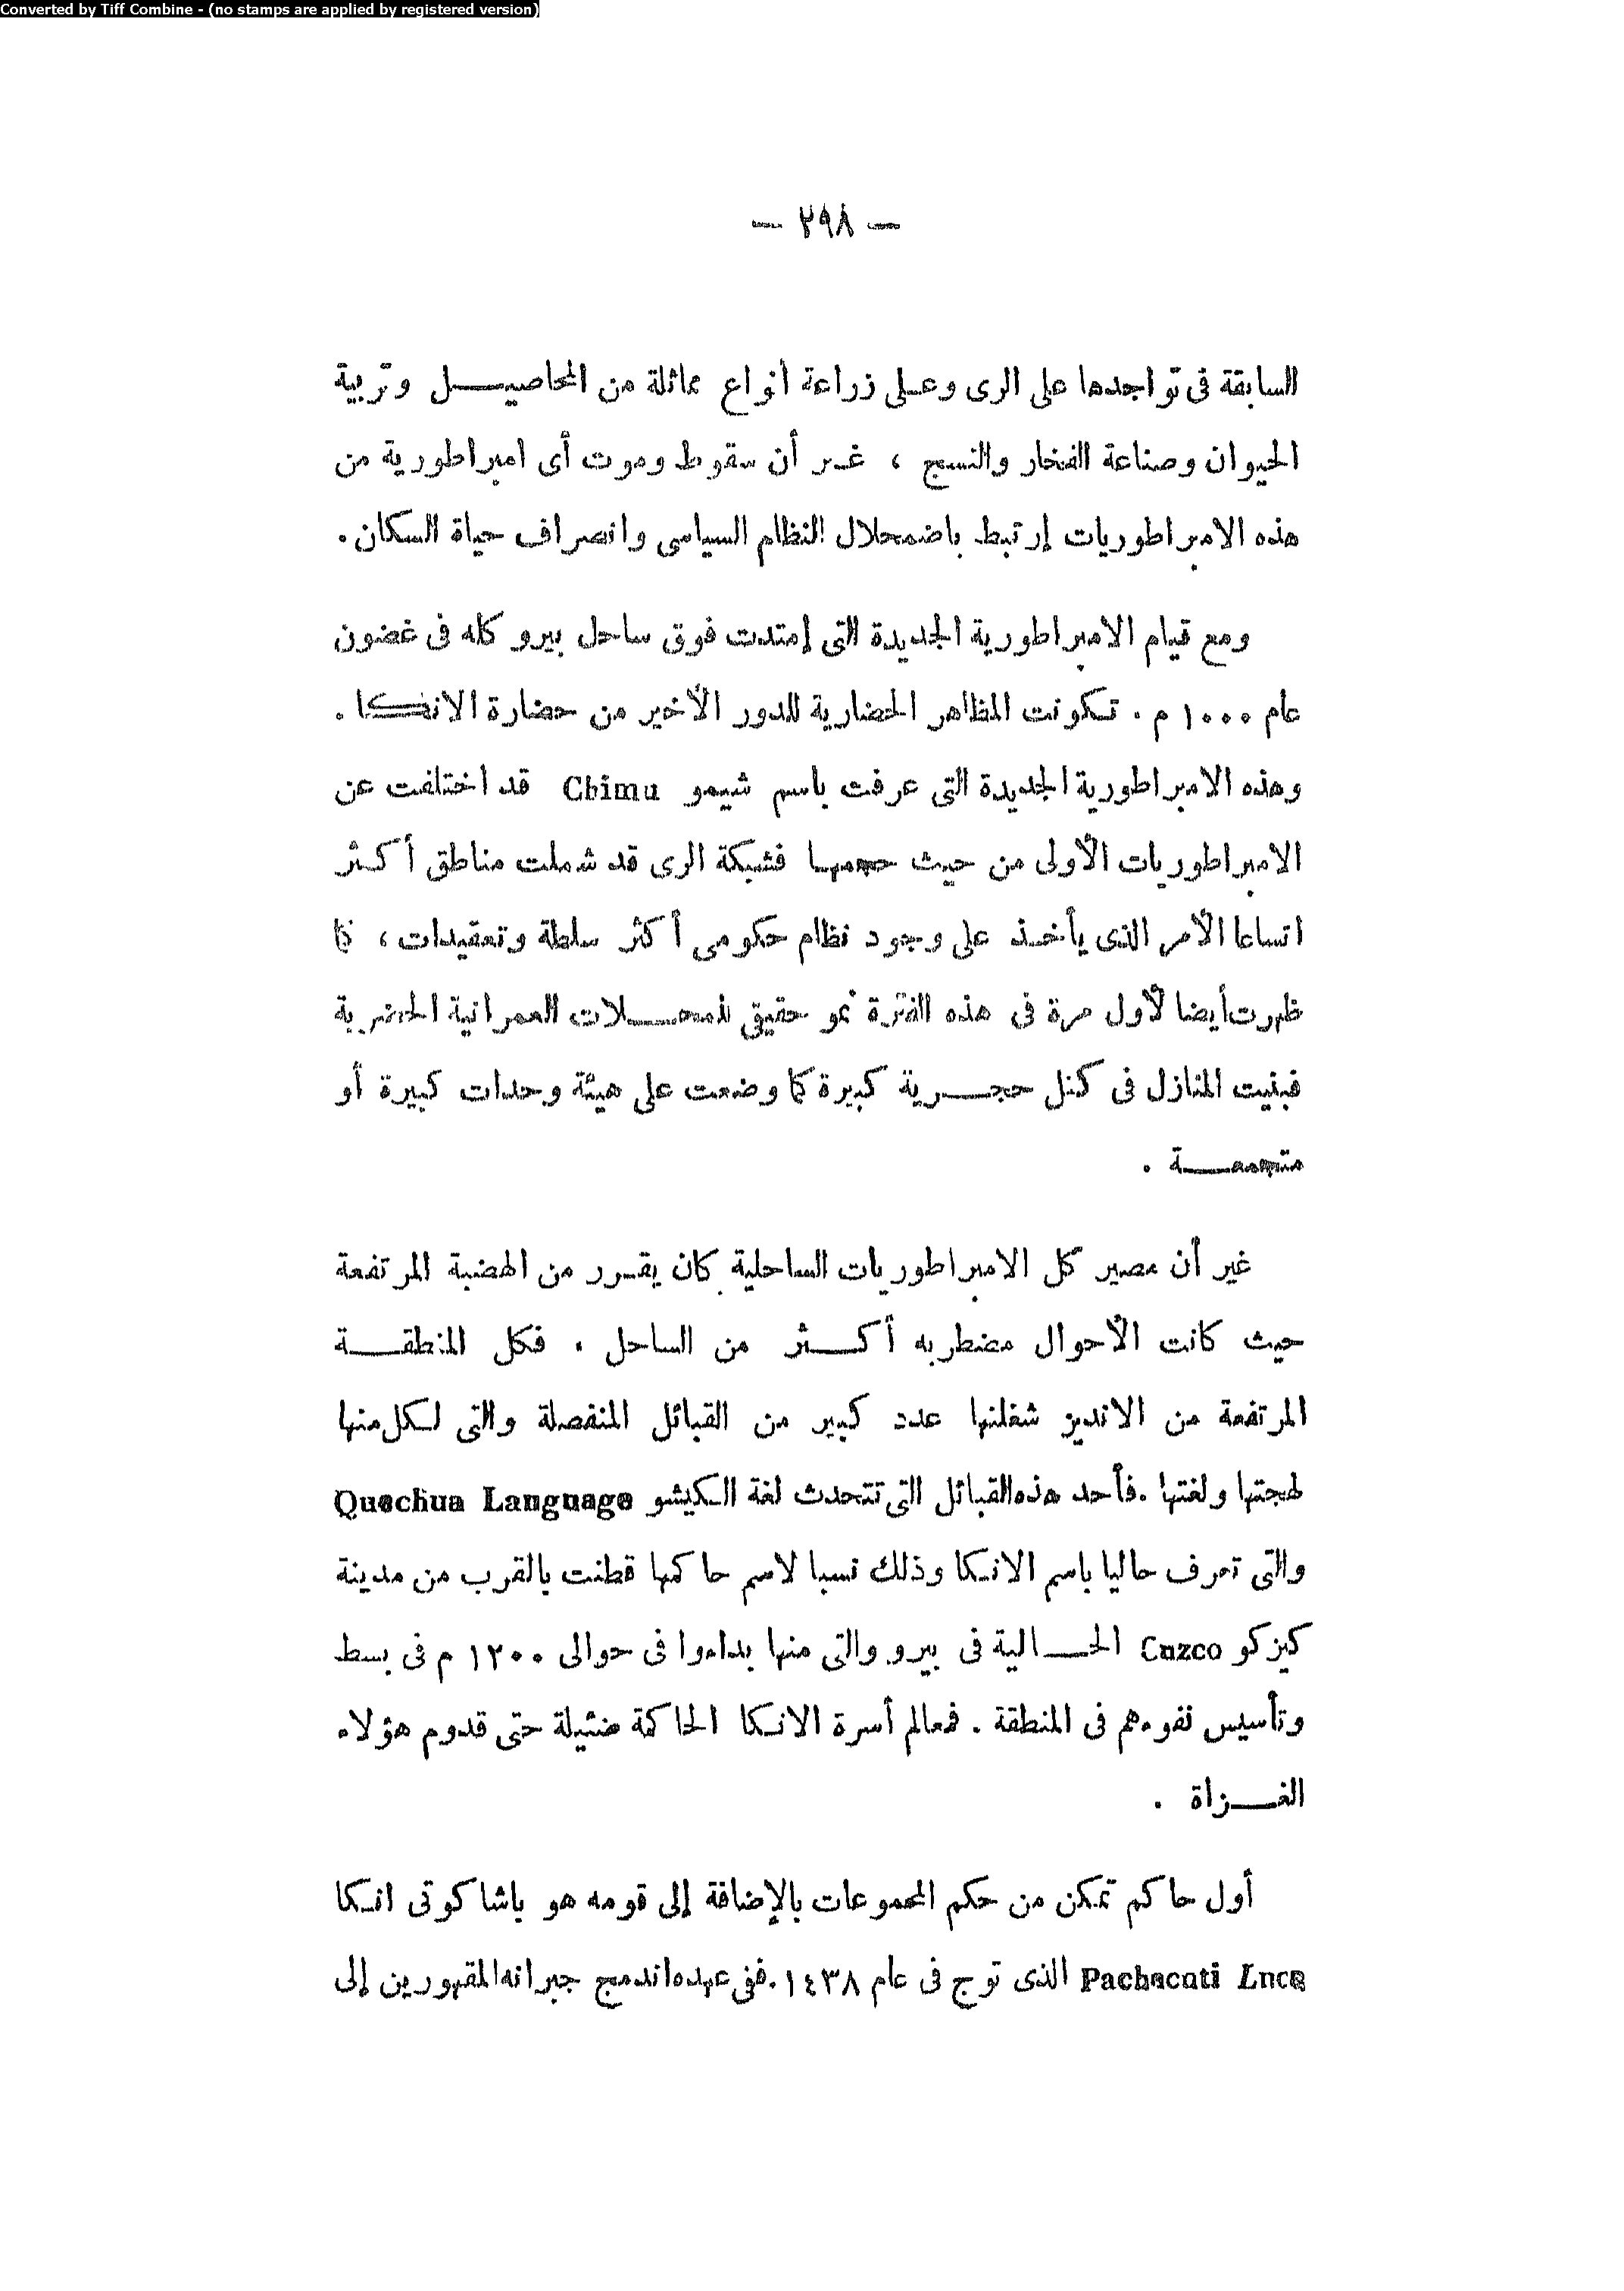 Converted by Tiff Combine - (no stamps are applied by registered version)
— ٢٩٨ —
السابقة فى تواجدها على الرى وعلى زراعة أنواع مماثلة من المحاصيل وتربية
الحيوان وصناعة الفخار والنسيج ، غير أن سقوط وموت أى امبراطورية من
هذه الامبراطوريات إرتبط باضمحلال النظام السياسى وانصراف حياة السكان .
ومع قيام الامبراطورية الجديدة التى إمتدت فوق ساحل بيرو كله فى غضون
عام ١٠٠٠ م . تكونت المظاهر الحضارية للدور الأخير من حضارة الانكا .
وهذه الامبراطورية الجديدة التى عرفت باسم شيمو Chimu قد اختلفت عن
الامبراطوريات الأولى من حيث حجمها فشبكة الرى قد شملت مناطق أكثر
اتساعا الأمر الذى يأخذ على وجود نظام حكومى أكثر سلطة وتعقيدات ، كما
ظهرت أيضا لأول مرة فى هذه الفترة نمو حقيقى للمحلات العمرانية الحضرية
فبنيت المنازل فى كتل حجرية كبيرة كما وضعت على هيئة وحدات كبيرة أو
متجمعة .
غير أن مصير كل الامبراطوريات الساحلية كان يقرر من الهضبة المرتفعة
حيث كانت الأحوال مضطربه أكثر من الساحل . فكل المنطقة
المرتفعة من الانديز شغلتها عدد كبير من القبائل المنفصلة والتى لكل منها
لهجتها ولغتها . فأحد هذه القبائل التى تتحدث لغة الكيشو Quechua Language
والتى تعرف حاليا باسم الانكا وذلك نسبا لاسم حاكمها قطنت بالقرب من مدينة
كيزكو Cuzco الحالية فى بيرو والتى منها بداءوا فى حوالى ١٢٠٠ م فى بسط
وتأسيس نفوءهم فى المنطقة . فمعالم أسرة الانكا الحاكمة ضئيلة حتى قدوم هؤلاء
الغزاة .
أول حاكم تمكن من حكم المجموعات بالإضافة إلى قومه هو باشاكوتى انكا
Pachacuti Inca الذى توج فى عام ١٤٣٨ . ففى عهده اندمج جيرانه المقهورين إلى